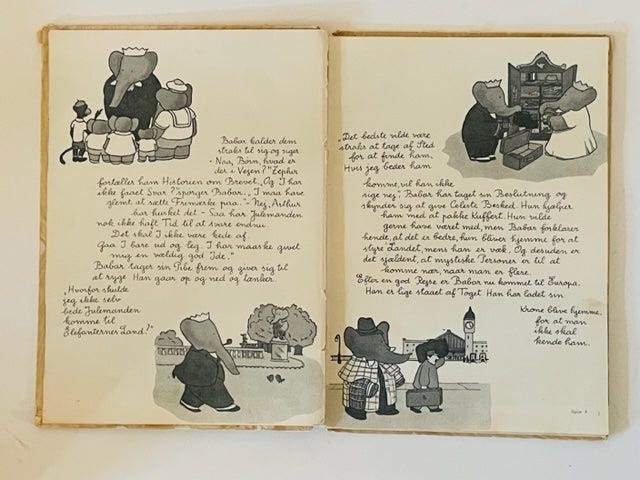 Babar kalder dem
straks til sig og siger
- Naa, Børn, hvad er
der i Vejen?" Zephir
fortæller ham Historien om Brevet. „Og I har
ikke faaet Svar? spørger Babar., I maa have
glemt at sætte Frimærke paa." - Nej, Arthur
har husket det - Saa har Julemanden
nok ikke haft Tid til at svare endnu.
Det skal I ikke være kede af
Gaa I bare ud og leg. I har maaske givet
mig en vældig god Ide."
Babar tager sin Pibe frem og giver sig til
at ryge Han gaar op og ned og tænker.
„Hvorfor skulde
jeg ikke selv
bede Julemanden
komme til
Elefanternes Land?"
„Det bedste vilde være
straks at tage af Sted
for at finde ham.
Hvis jeg beder ham
komme, vil han ikke
sige nej". Babar har taget sin Beslutning og
skynder sig at give Celeste Besked. Hun hjælper
ham med at pakke Kuffert. Hun vilde
gerne have været med, men Babar forklarer
hende, at det er bedre, hun bliver hjemme for at
styre Landet, mens han er væk. Og desuden er
det sjældent, at mystiske Personer er til at
komme nær, naar man er flere.
Efter en god Rejse er Babar nu kommet til Europa.
Han er lige staaet af Toget Han har ladet sin
Krone blive hjemme,
for at man
ikke skal
kende ham.